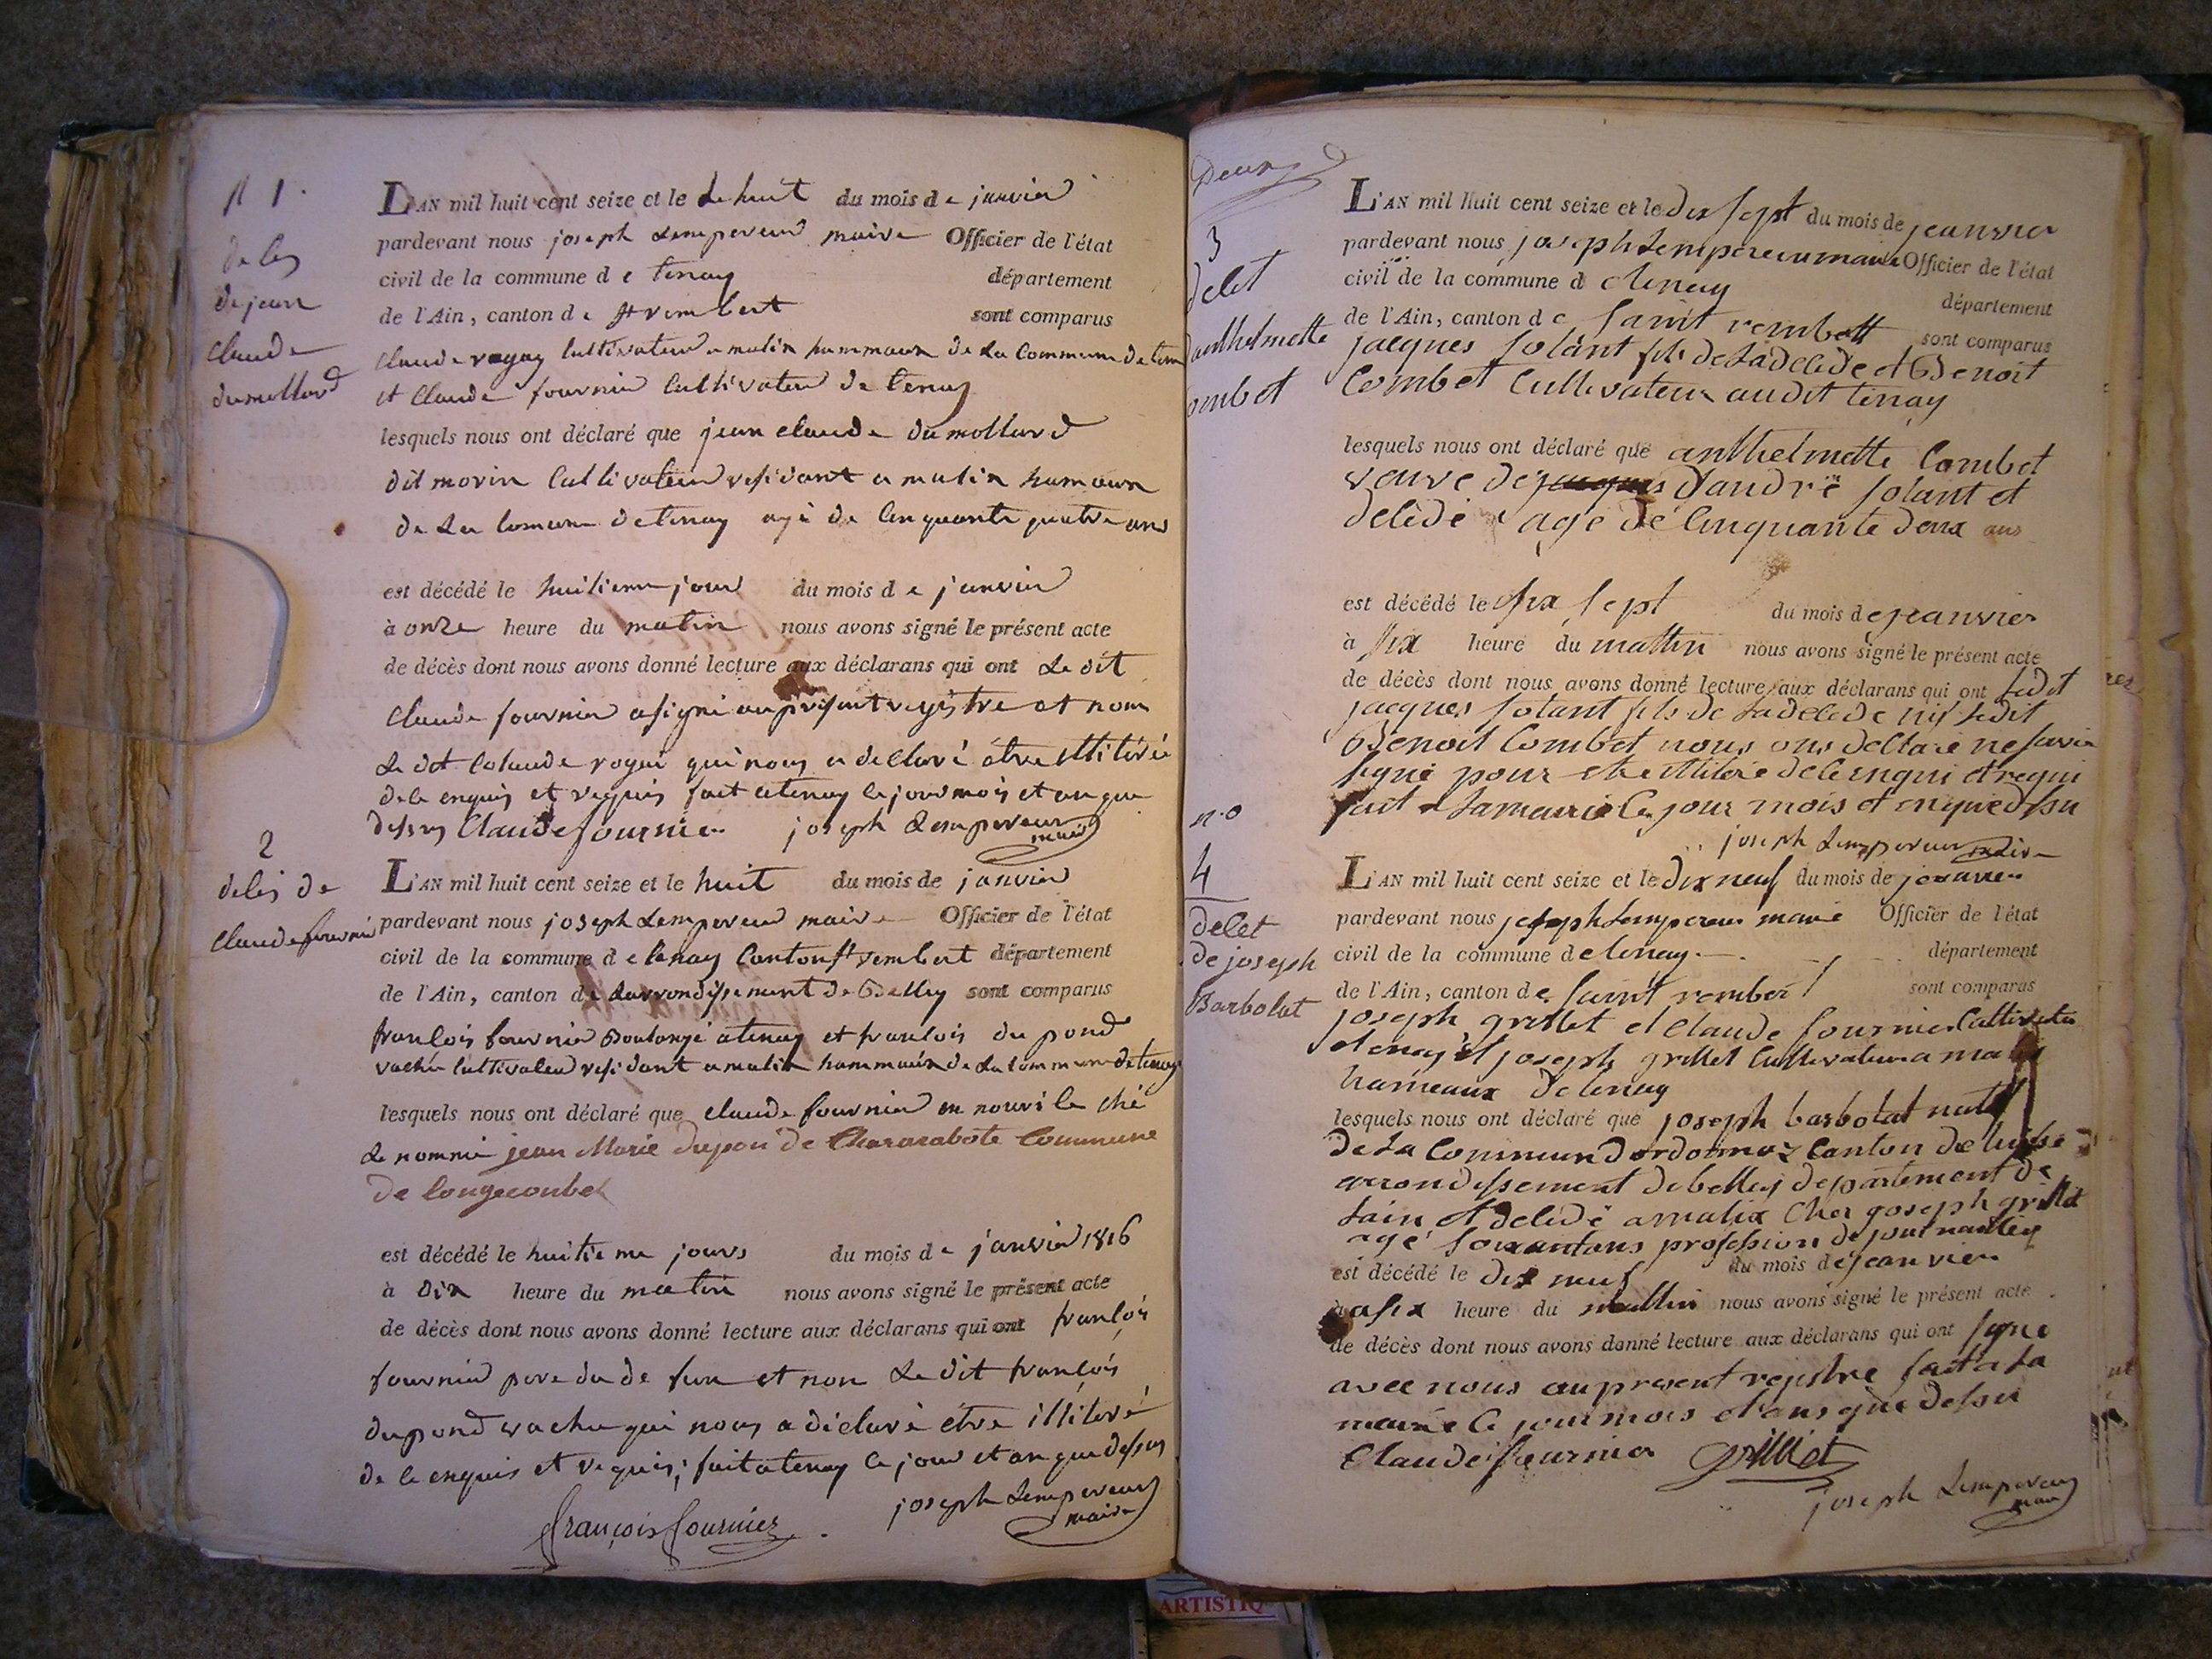 N 1.
deces
de jean
claude
dumollard
L'AN mil huit cent seize et le Le huit du mois de janvier
pardevant nous joseph Lempereur maire Officier de l'état
civil de la commune de tenay département
de l'Ain, canton de st rembert sont comparus
Claude royay Cultivateur a malix hammaux de La Commune de tenay
et Claude fournier Cultivateur de tenay
lesquels nous ont déclaré que jean claude dumollard
dit morin Cultivateur residant a malix hamaux
de La comune de tenay agé de Cinquante quatre ans
est décédé le huitieme jour du mois de janvier
à onze heure du matin nous avons signé le présent acte
de décès dont nous avons donné lecture aux déclarans qui ont Le dit
Claude fournier a signé au present registre et non
Le dit Colaude royer qui nous a declaré être illitéré
de ce enquis et requis fait a tenay le jour mois et an que
dessus Claude fournier joseph Lempereur
maire
2
deces de
Claude fournier
L'AN mil huit cent seize et le huit du mois de janvier
pardevant nous joseph Lempereur maire Officier de l'état
civil de la commune de tenay Canton st rembert département
de l'Ain, canton de Larrondissement de Belley sont comparus
francois fournier Boulongé a tenay et francois du pond
vachu Cultivateur residant a malix hammaux de La commune de tenay
lesquels nous ont déclaré que claude fournier en nouri le ché
Le nommé jean Marie dupon de Charabote Commune
de longecombe
est décédé le huitieme jours du mois de janvier 1816
à dix heure du matin nous avons signé le présent acte
de décès dont nous avons donné lecture aux déclarans qui ont francois
fournier pere du de fun et non Le dit francois
dupond vachu qui nous a déclaré être illitéré
de ce enquis et requis; fait a tenay le jour et an que dessus
françois fournier. joseph Lempereur
maire
Deux
3
decet
danthelmette
ombet
L'AN mil huit cent seize et le dix sept du mois de jeanvier
pardevant nous joseph Lempereur maire Officier de l'état
civil de la commune de tenay département
de l'Ain, canton de Saint rembert sont comparus
jacques solant fils de La decede et Benoit
Combet Cultivateur au dit tenay
lesquels nous ont déclaré que anthelmette Combet
veuve de jacques d'andré solant et
decede age de Cinquante deux ans
est décédé le dix sept du mois de jeanvier
à six heure du mattin nous avons signé le présent acte
de décès dont nous avons donné lecture aux déclarans qui ont Ledit
jacques solant fils de La decede nis Ledit
Benoit Combet nous ons declaré ne savoir
signé pour etre illitéré de ce enqui et requi
fait a La mairie le jour mois et en que dessu
joseph Lempereur maire
n.o
4
decet
de joseph
Barbolat
L'AN mil huit cent seize et le dix neuf du mois de jeanvier
pardevant nous joseph Lempereur maire Officier de l'état
civil de la commune de tenay département
de l'Ain, canton de Saint rember sont comparus
joseph grillet et Claude fournier Cultivateur
a tenay et joseph grillet Cultivateur a malix
hameaux de tenay
lesquels nous ont déclaré que joseph barbolat natif
de La Commune d'ordonnaz Canton de luisse
arrondissement de belley departement de
Lain et decedé a malix cher joseph grillet
agé souxantans profession de journaulier
est décédé le dix neuf du mois de jeanvier
à a six heure du mattin nous avons signé le présent acte
de décès dont nous avons donné lecture aux déclarans qui ont signe
avec nous au present rejistre fait a La
mairie le jour mois et ans que dessu
Claude fournier Grilliet
joseph Lempereur
maire
ARTISTIQ